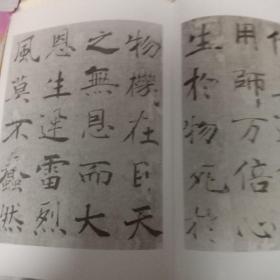 用師万倍心
生於物死於
物機在目天
之無恩而大
恩生迅雷烈
風莫不蠢然